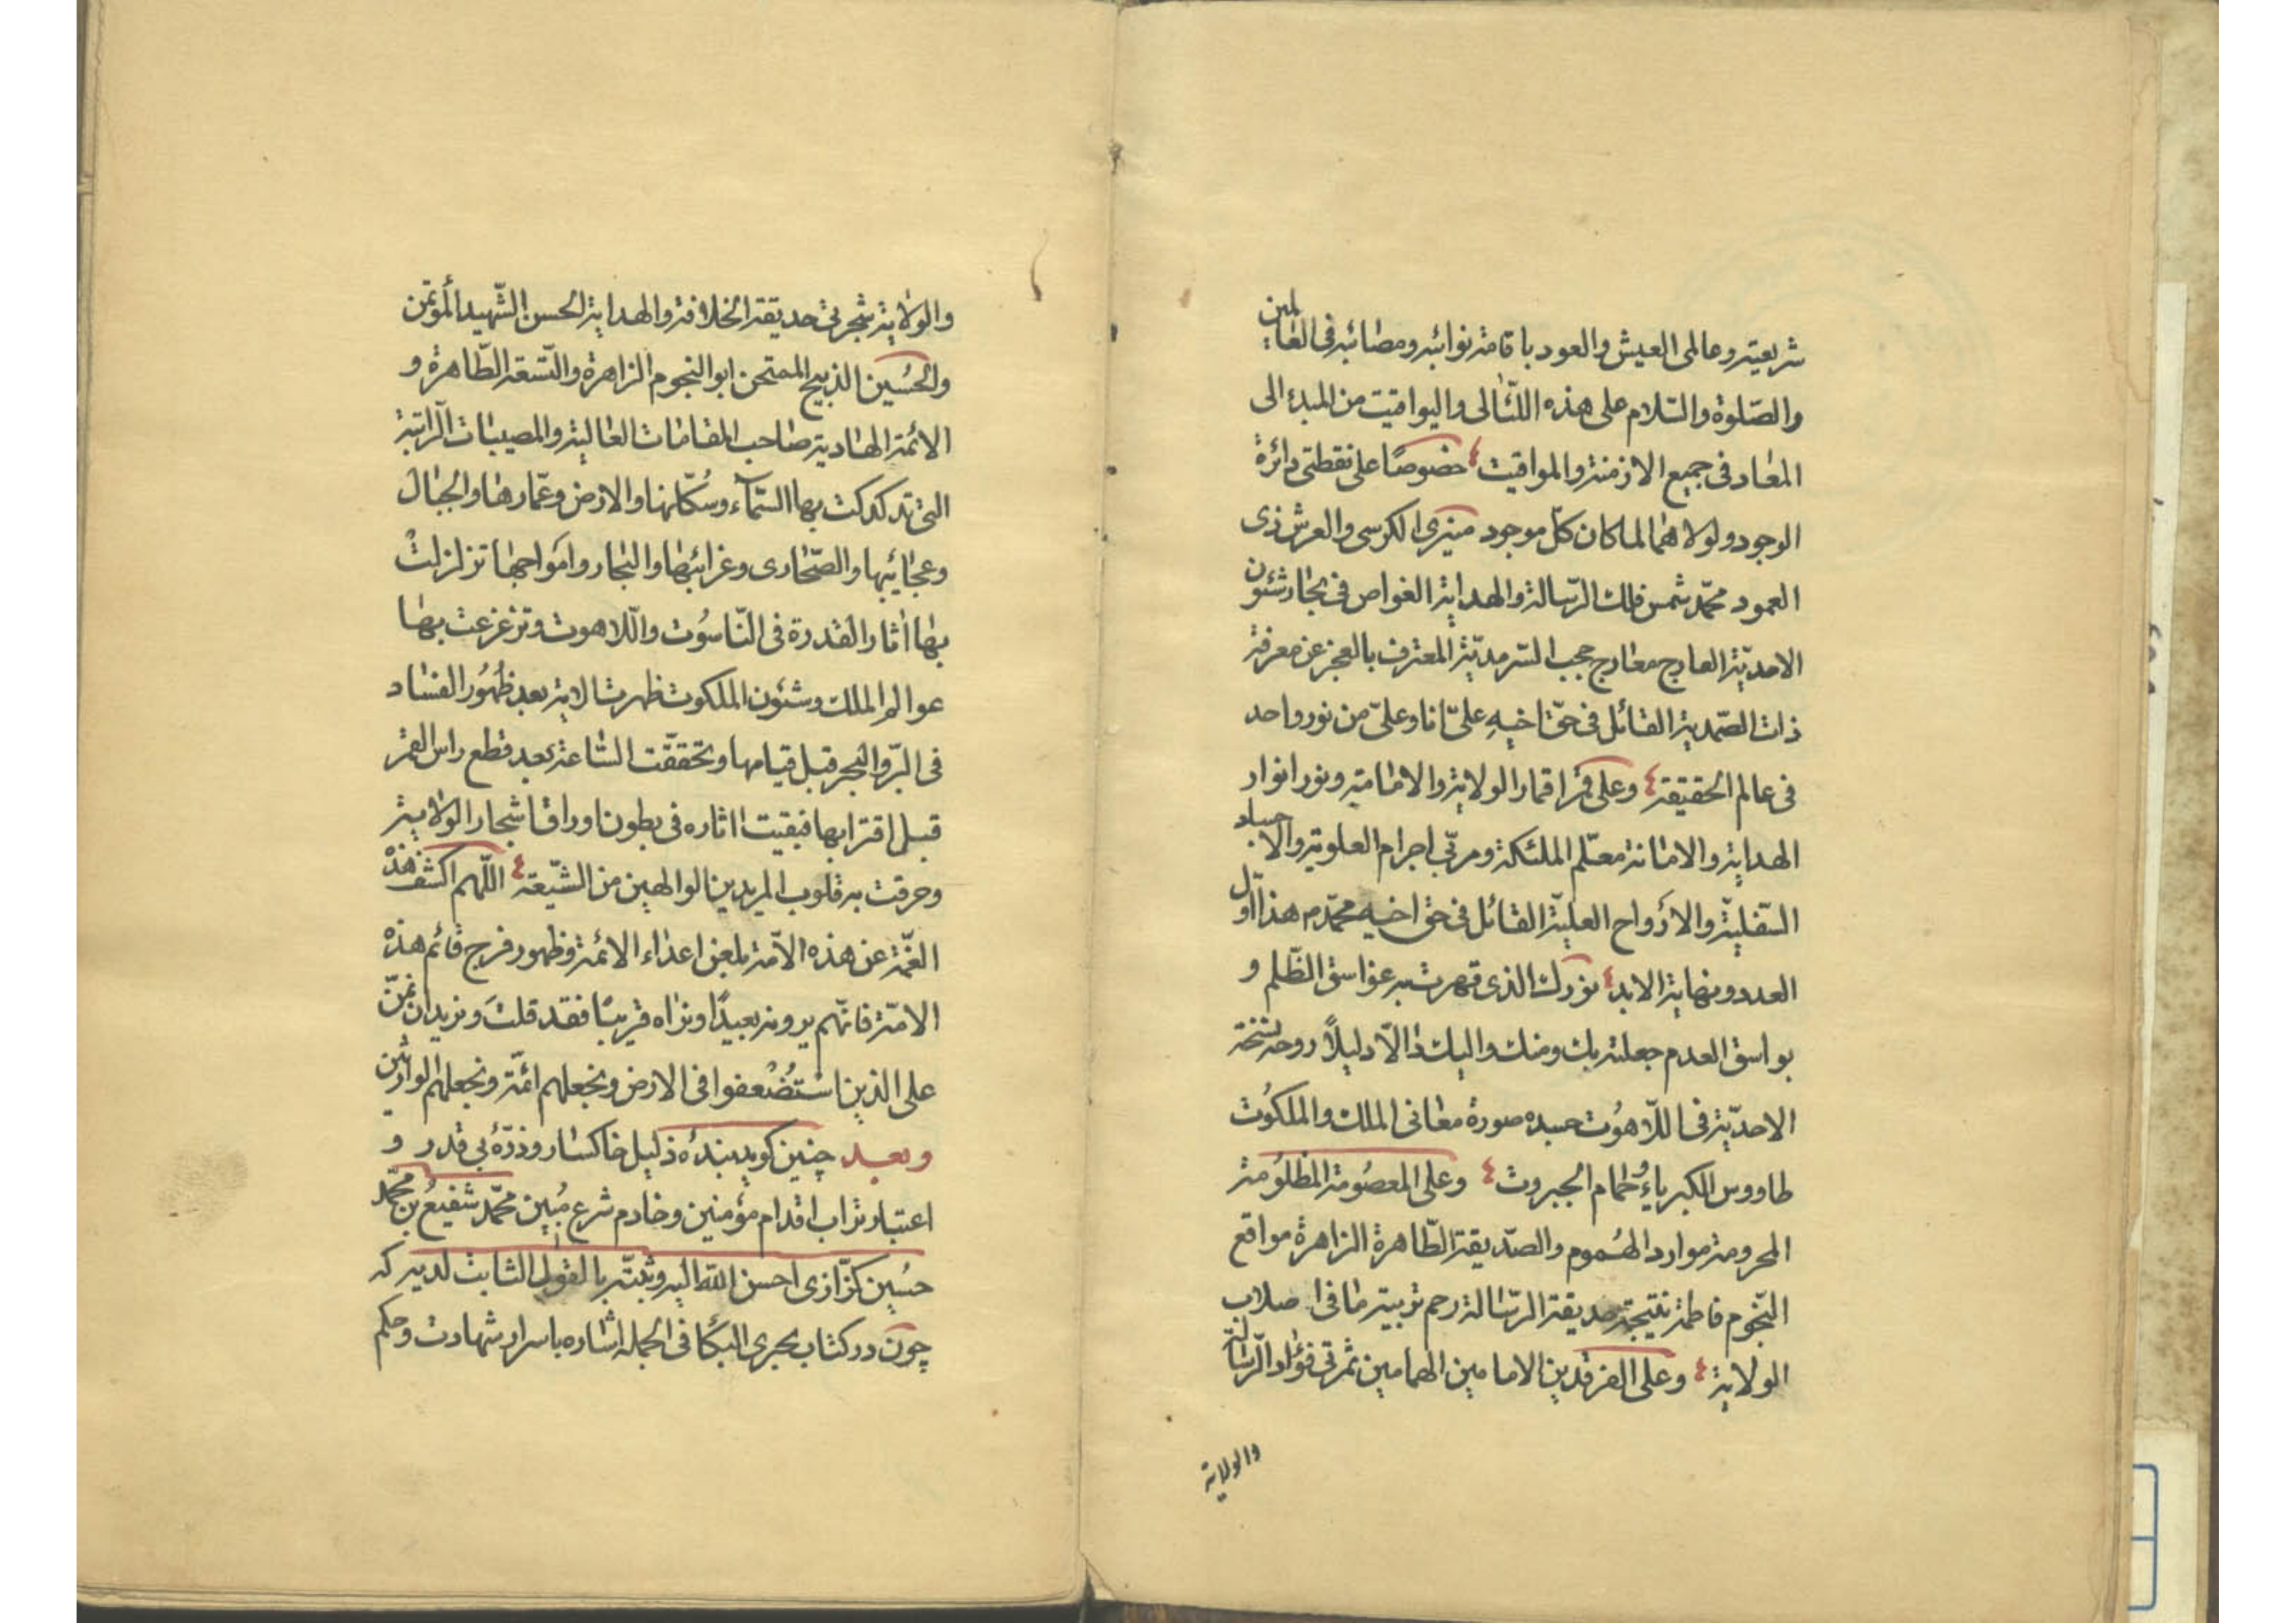 شریعته و عالمی العیش والعود باقامة نوائبه و مصائبه فی العالمین
والصّلوة والسّلام علی هذه اللّئالی والیواقیت من المبدء الی
المعاد فی جمیع الازمنة والمواقیت خصوصًا علی نقطتی دائرة
الوجود ولولاهما لما کان کلّ موجود منیری الکرسی والعرش ذی
العمود محمّد شمس فلک الرّسالة والهدایة الغواص فی بحار شئون
الاحدیّة العارج معارج حجب السّرمدیّة المعترف بالعجز عن معرفة
ذات الصّمدیة القائل فی حقّ اخیهِ علیّ انا وعلیّ من نور واحد
فی عالم الحقیقة وعلی قمر اقمار الولایة والامامیة ونور انوار
الهدایة والامانة معلّم الملئکة ومربّی اجرام العلویة والاجساد
السّفلیّة والارواح العلیّة القائل فی حق اخیه محمّد م هذا اوّل
العدد ونهایة الابد نورک الذی قهرت به غواسق الظّلم و
بواسق العدم جعلته بک ومنک والیک دالّا دلیلاً روحه نسخة
الاحدیّة فی اللّاهوُت جسده صورة معانی الملک والملکوُت
طاووس الکبریاءِ وحمام الجبروت وعلی المعصُومة المظلوُمة
المحرومة موارد الهُموم والصّدیقة الطّاهرة الزاهرة مواقع
النّجوم فاطمة نتیجة حدیقة الرّسالة رحم تربیة ما فی اصلاب
الولایة وعلی الفرقدین الامامین الهمامین ثمرتی فؤاد الرّسالة
والولایة
والولایة شجرتی حدیقة الخلافة والهدایة الحسن الشّهید المؤتمن
والحُسین الذبیح الممتحن ابو النجوم الزاهرة والتّسعة الطّاهرة و
الائمة الهادیة صاحب المقامات العالیة والمصیبات الرّاتبة
التی تدکدکت بها السّماء وسُکّانها والارض وعمّارها والجبال
وعجائبها والصّحاری وغرائبها والبحار وامَواجها تزلزلتْ
بها اثار القدرة فی النّاسوُت واللّاهوت وتزعزعت بها
عوالم الملک وشئون الملکوت ظهرت الایة بعد ظُهوُر الفساد
فی البرّ والبحر قبل قیامها وتحققّت السّاعة بعد قطع راس القمر
قبل اقترابها فبقیت اثاره فی بطون اوراق اشجار الولایة
وحرقت به قلوب المریدین الوالهین من الشّیعة اللّهم اکشف هذه
الغمّة عن هذه الامّة بلعن اعداء الائمة وظهور فرج قائم هذه
الامّة فانّهم یرونه بعیدًا ونراه قریبًا فقد قلتَ ونرید ان نمنّ
علی الذین اسْتُضْعفوا فی الارض ونجعلهم ائمّة ونجعلهم الوارثین
وبعد چنین کوید بندۀ ذلیل خاکسار و ذرّۀ بی قدر و
اعتبار تراب اقدام مؤمنین و خادم شرع مُبین محمّد شفیعُ بن محمّد
حسُین کزّازی احسن اللّه الیه وثبّته بالقول الثابت لدیه که
چون در کتاب بحری البکا فی الجمله اشاره باسرار شهادت و حکم